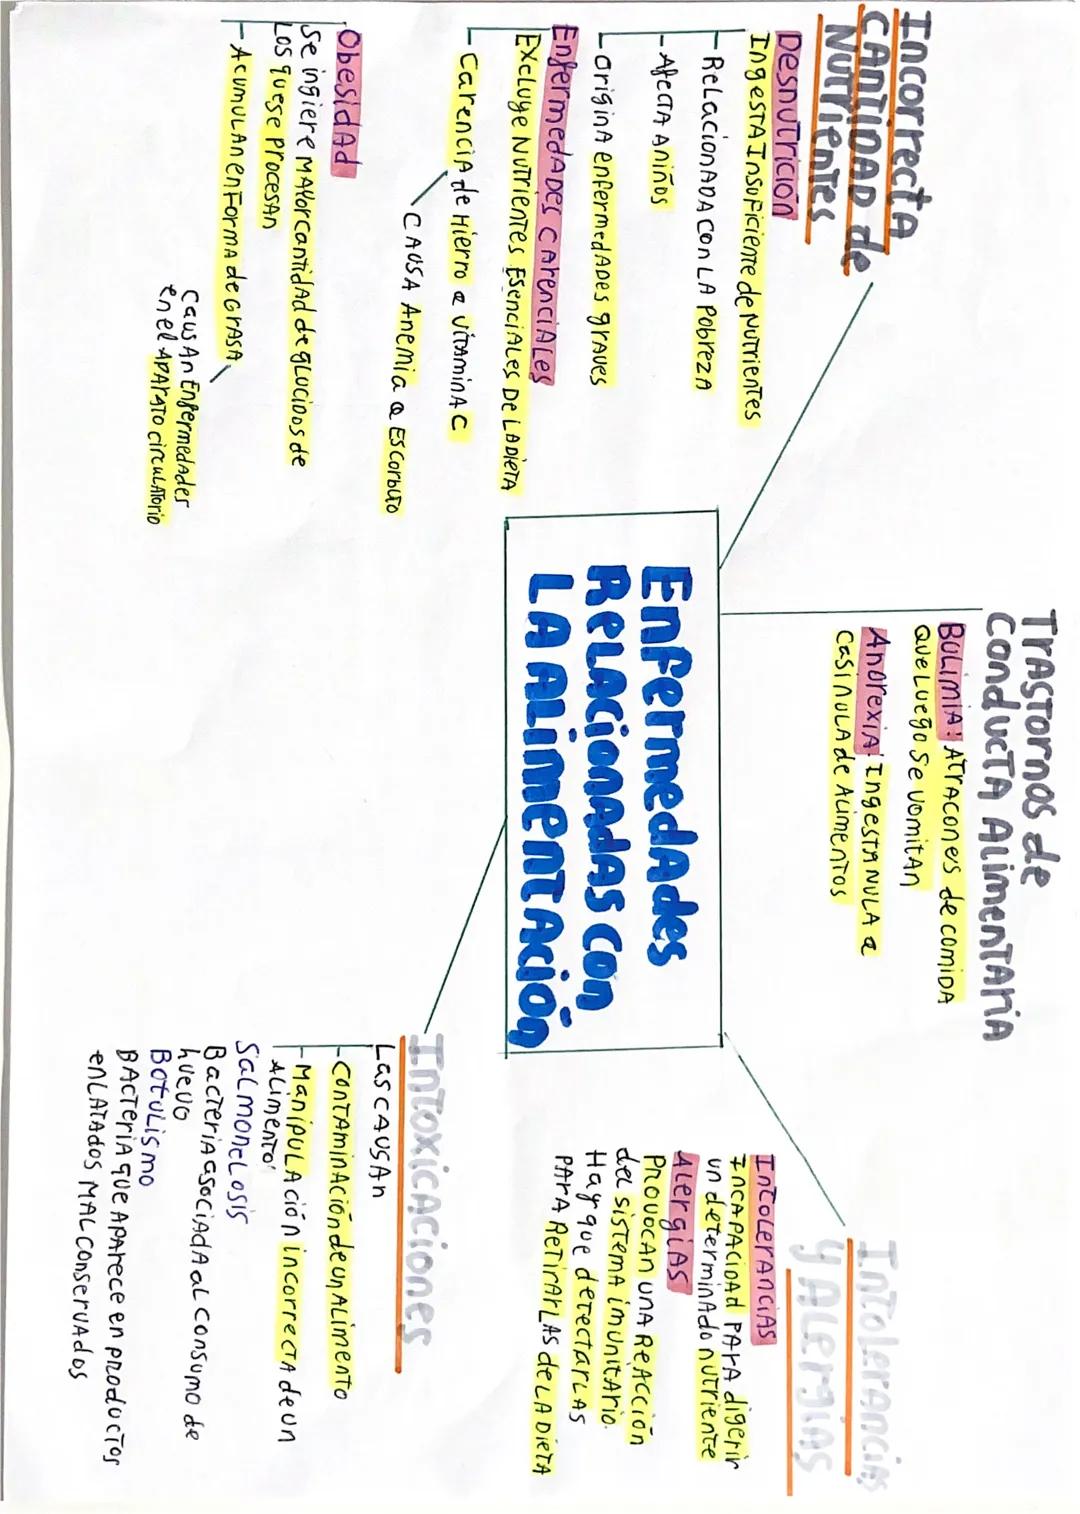 Enfermedades
Relacionadas con
La Alimentación
Incorrecta
cantidad de
Nutrientes
Desnutrición
Ingesta Insuficiente de Nutrientes
- Relacionada con la Pobreza
- Afecta a niños
- origina enfermedades graves
Enfermedades carenciales
Excluye Nutrientes Esenciales De la dieta
- Carencia de Hierro o vitamina C
Causa Anemia o Escorbuto
Obesidad
Se ingiere mayor cantidad de glucidos de
Los que se procesan
- Acumulan en Forma de grasa
Causan Enfermedades
en el aparato circulatorio
Trastornos de
Conducta Alimentaria
Bulimia: Atracones de comida
que luego se vomitan
Anorexia: Ingesta nula o
casi nula de Alimentos
Intolerancias
y Alergias
Intolerancias
Incapacidad para digerir
un determinado nutriente
Alergias
Provocan una reacción
del sistema imunitario.
Hay que detectarlas
para retirarlas de la dieta
Intoxicaciones
Las causan
- Contaminación de un alimento
- Manipulación incorrecta de un
Alimento
Salmonelosis
Bacteria asociada al consumo de
huevo
Botulismo
Bacteria que aparece en productos
enlatados mal conservados